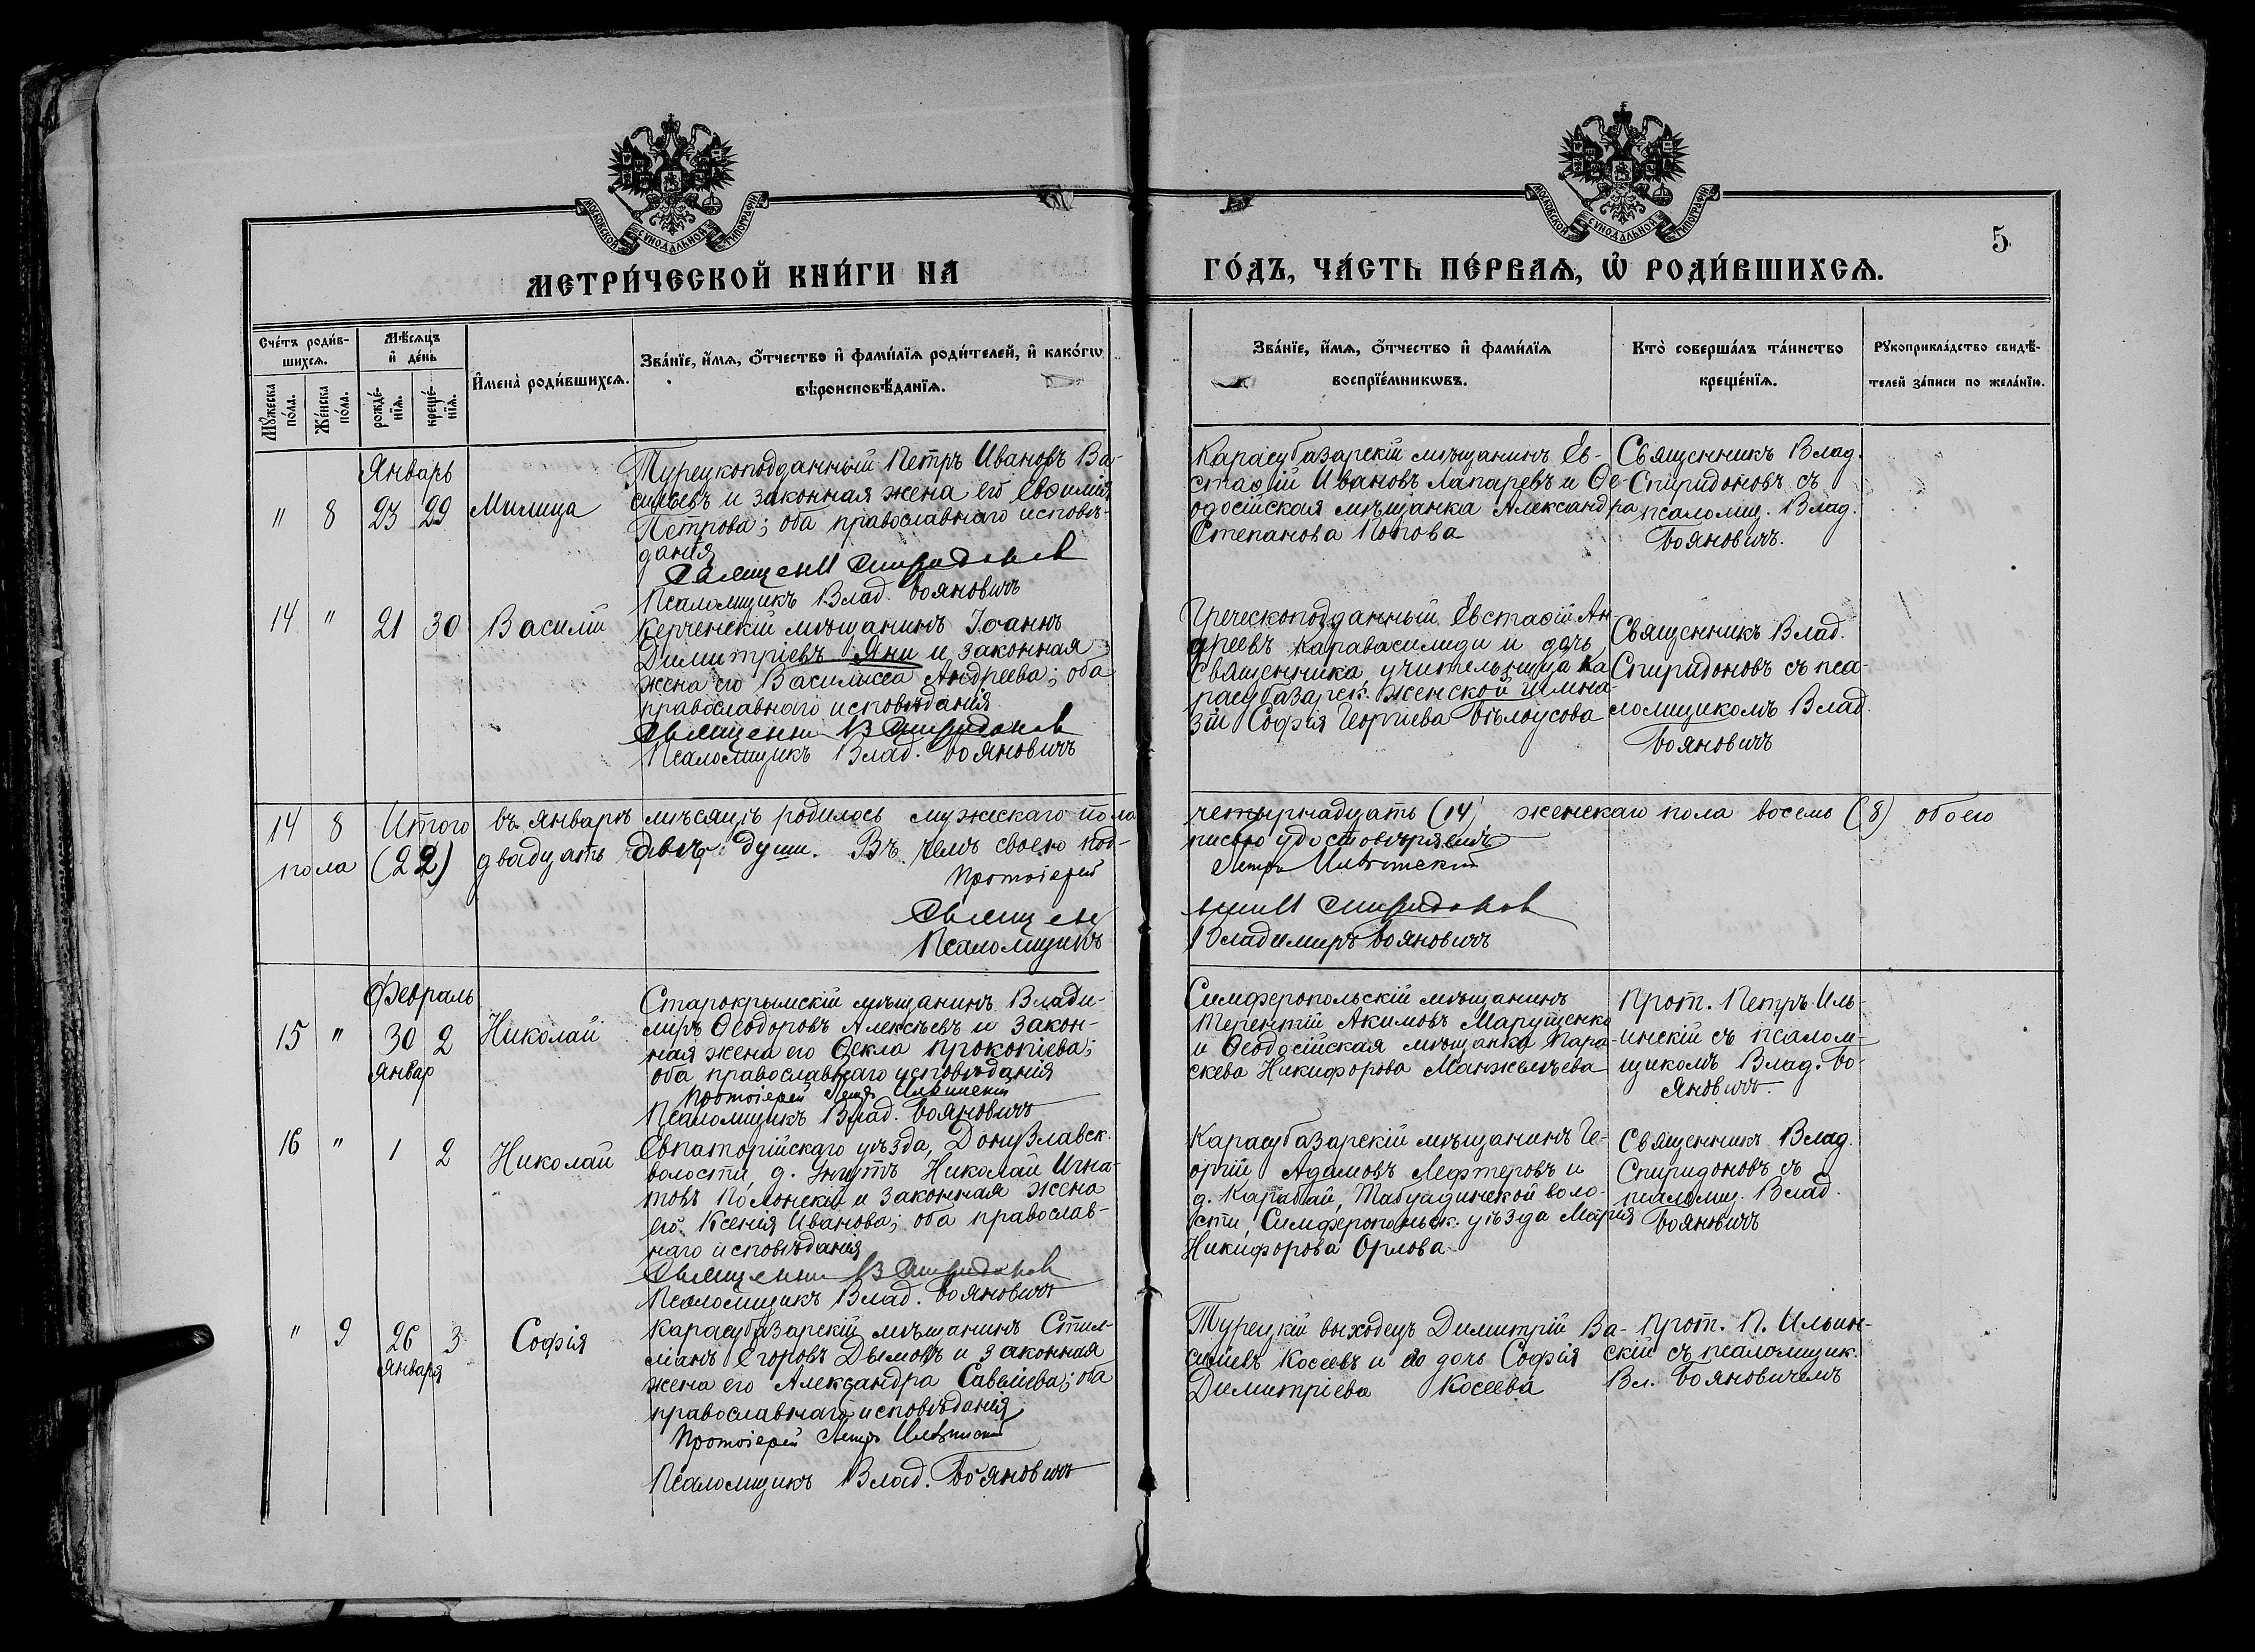 МОСКОВСКОЙ СУНОДАЛЬНОЙ ТИПОГРАФІИ
МОСКОВСКОЙ СУНОДАЛЬНОЙ ТИПОГРАФІИ
5
МЕТРИ́ЧЕСКОЙ КНИ́ГИ НА
ГО́ДЪ, ЧА́СТЬ ПЕ́РВАѦ, Ѡ҆ РОДИ́ВШИХСѦ.
Сче́тъ роди́в-
шихсѧ.
Мѣ́сѧцъ
и҆ де́нь
Мꙋ́жеска
по́ла.
Же́нска
по́ла.
рожде́-
нїѧ.
креще́-
нїѧ.
И҆мена̀ роди́вшихсѧ.
Зва́нїе, и҆́мѧ, ѻ҆́тчество и҆ фами́лїѧ роди́телей, и҆ како́гѡ
вѣроисповѣ́данїѧ.
Зва́нїе, и҆́мѧ, ѻ҆́тчество и҆ фами́лїѧ
воспрїе́мникѡвъ.
Кто̀ соверша́лъ та́инство
креще́нїѧ.
Рꙋкоприкла́дство свидѣ́-
телей за́писи по жела́нїю.
Январь
" 8 23 29 Милица
Турецкоподданный Петръ Ивановъ Ва-
сильевъ и законная жена его Евѳимія
Петрова; оба православнаго исповѣ-
данія
Священ Спиридонов
Псаломщикъ Влад. Бояновичъ
Карасубазарскій мѣщанинъ Ев-
стафій Ивановъ Лапаревъ и Ѳе-
одосійская мѣщанка Александра
Степанова Попова
Священникъ Влад.
Спиридоновъ съ
псаломщ. Влад.
Бояновичъ.
14 " 21 30 Василій
Керченскій мѣщанинъ Іоаннъ
Димитріевъ Яни и законная
жена его Василисса Андреева; оба
православнаго исповѣданія
Священни В Спиридонов
Псаломщикъ Влад. Бояновичъ
Греческоподданный Евстафій Ан
дреевъ Каравасилиди и дочь
Священника учительница Ка
расубазарск. женской гимна
зіи Софія Георгіева Бѣлоусова
Священникъ Влад.
Спиридоновъ съ пса-
ломщикомъ Влад.
Бояновичъ
14 8 Итого въ январѣ мѣсяцѣ родилось мужескаго пола четырнадцать (14) женскаго пола восемь (8) обоего
пола (22) двадцать двѣ души. Въ чемъ своею под- писью удостовѣряемъ
Протоіерей Петръ Ильинскій
Священ Спиридонов
Псаломщикъ Владимиръ Бояновичъ
Февраль
15 " 30 2 Николай
Январ
Старокрымскій мѣщанинъ Влади-
миръ Ѳеодоровъ Алексѣевъ и закон-
ная жена его Ѳекла Прокопіева;
оба православнаго исповѣданія
Протоіерей Петръ Ильинскій
Псаломщикъ Влад. Бояновичъ
Симферопольскій мѣщанинъ
Терентій Акимовъ Марущенко
и Ѳеодосійская мѣщанка Пара-
скева Никифорова Манжелѣева
Прот. Петръ Иль-
инскій съ псалом-
щикомъ Влад. Бо-
яновичъ.
16 " 1 2 Николай
Евпаторійскаго уѣзда, Донузлавск.
волости, д. Унгутъ Николай Игна-
товъ Полонскій и законная жена
его Ксенія Иванова; оба православ-
наго исповѣданія
Священни В Спиридонов
Псаломщикъ Влад. Бояновичъ
Карасубазарскій мѣщанинъ Ге-
оргій Адамовъ Лефтеровъ и
д. Карабай, Табулдинской воло-
сти, Симферопольск. уѣзда Марія
Никифорова Орлова
Священникъ Влад.
Спиридоновъ съ
псаломщ. Влад.
Бояновичъ
" 9 26 3 Софія
Января
Карасубазарскій мѣщанинъ Стил-
ліанъ Егоровъ Дымовъ и законная
жена его Александра Савеліева; оба
православнаго исповѣданія
Протоіерей Петръ Ильинскій
Псаломщикъ Влад. Бояновичъ
Турецкій выходецъ Димитрій Ва-
силіевъ Косеевъ и его дочь Софія
Димитріева Косеева
Прот. П. Ильин-
скій съ псаломщик.
Вл. Бояновичемъ